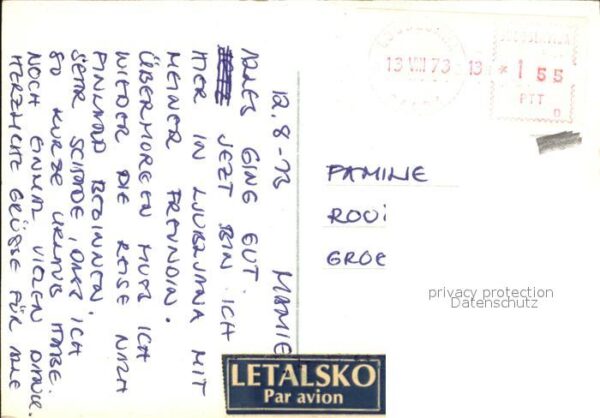 12.8-73
ALLES GING GUT.
JEZT BIN ICH
HIER IN LJUBLJANA MIT
MEINER FREUNDIN.
ÜBERMORGEN MUSS ICH
WIEDER DIE REISE NACH
FINLAND BEGINNEN.
SEHR SCHADE, DAS ICH
SO KURZE URLAUB HABE.
NOCH EINMAL VIELEN DANK.
HERZLICHE GRÜSSE FÜR ALLE
MAMIE
13 VIII 73
13
*1 55
PTT
FAMILIE
ROOi
GROE
privacy protection
Datenschutz
LETALSKO
Par avion